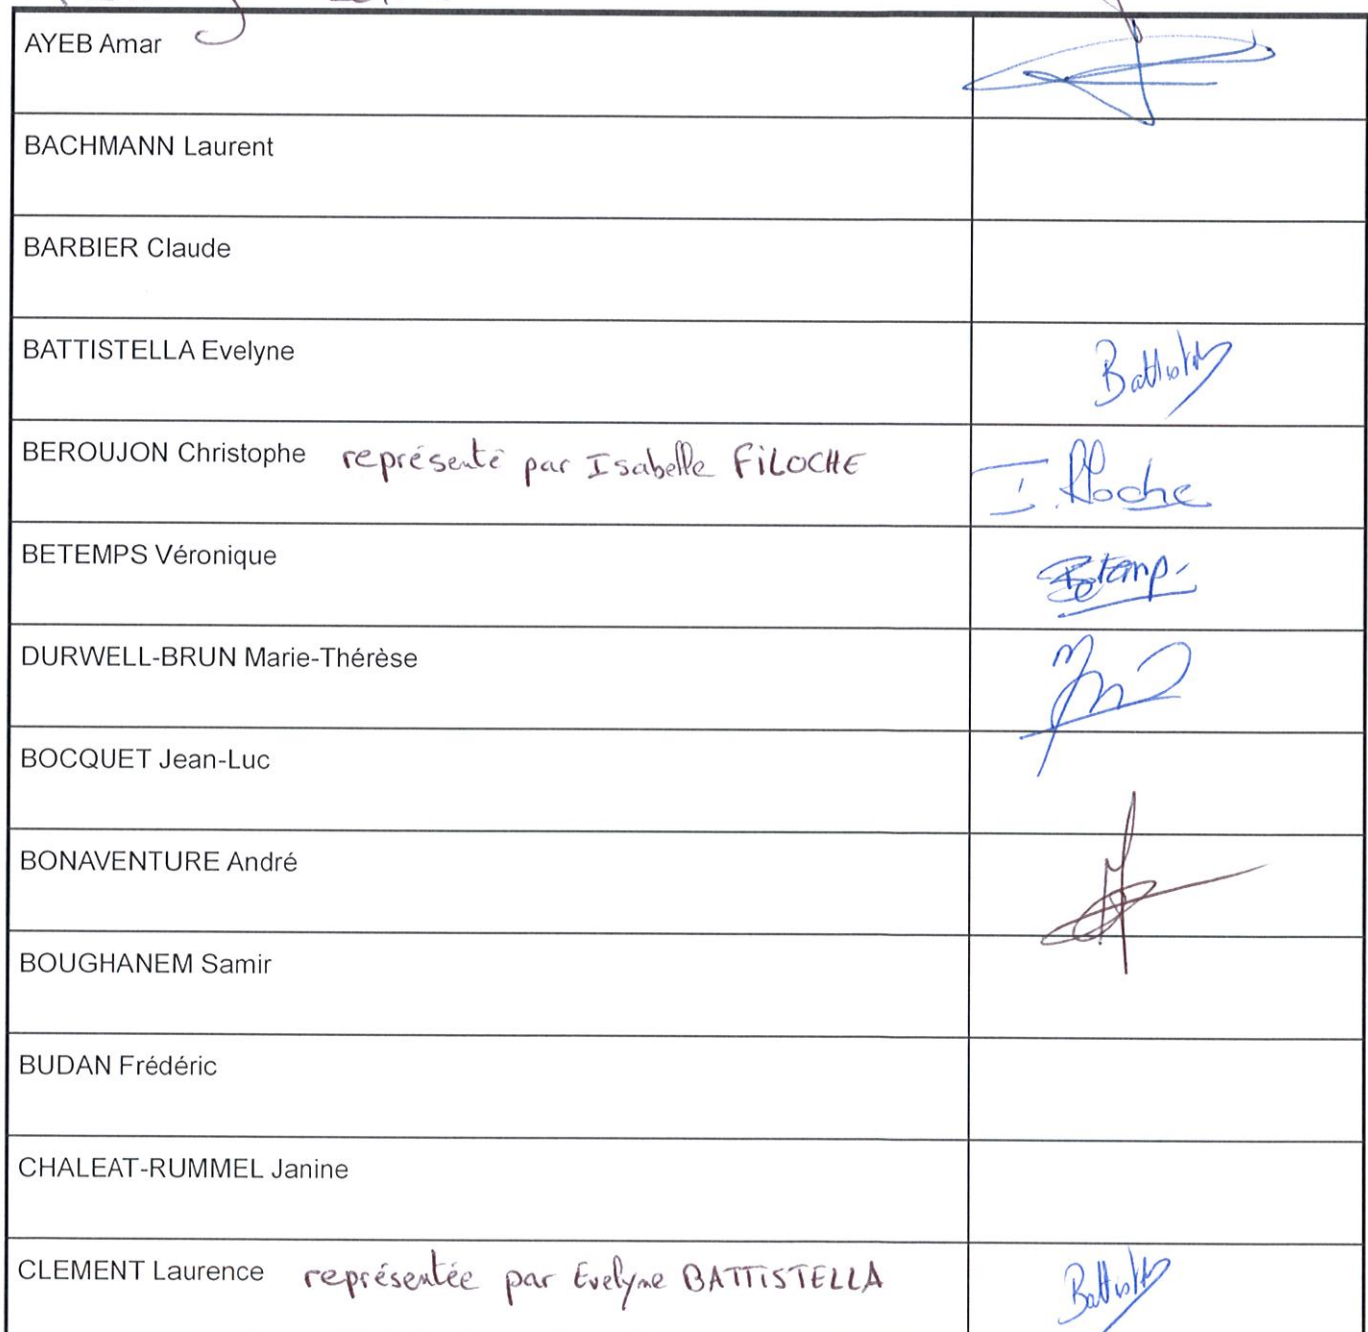 AYEB Amar
BACHMANN Laurent
BARBIER Claude
BATTISTELLA Evelyne
BEROUJON Christophe représenté par Isabelle FiLOCHE
I. filoche
BETEMPS Véronique
DURWELL-BRUN Marie-Thérèse
BOCQUET Jean-Luc
BONAVENTURE André
BOUGHANEM Samir
BUDAN Frédéric
CHALEAT-RUMMEL Janine
CLEMENT Laurence représentée par Evelyne BATTiSTELLA